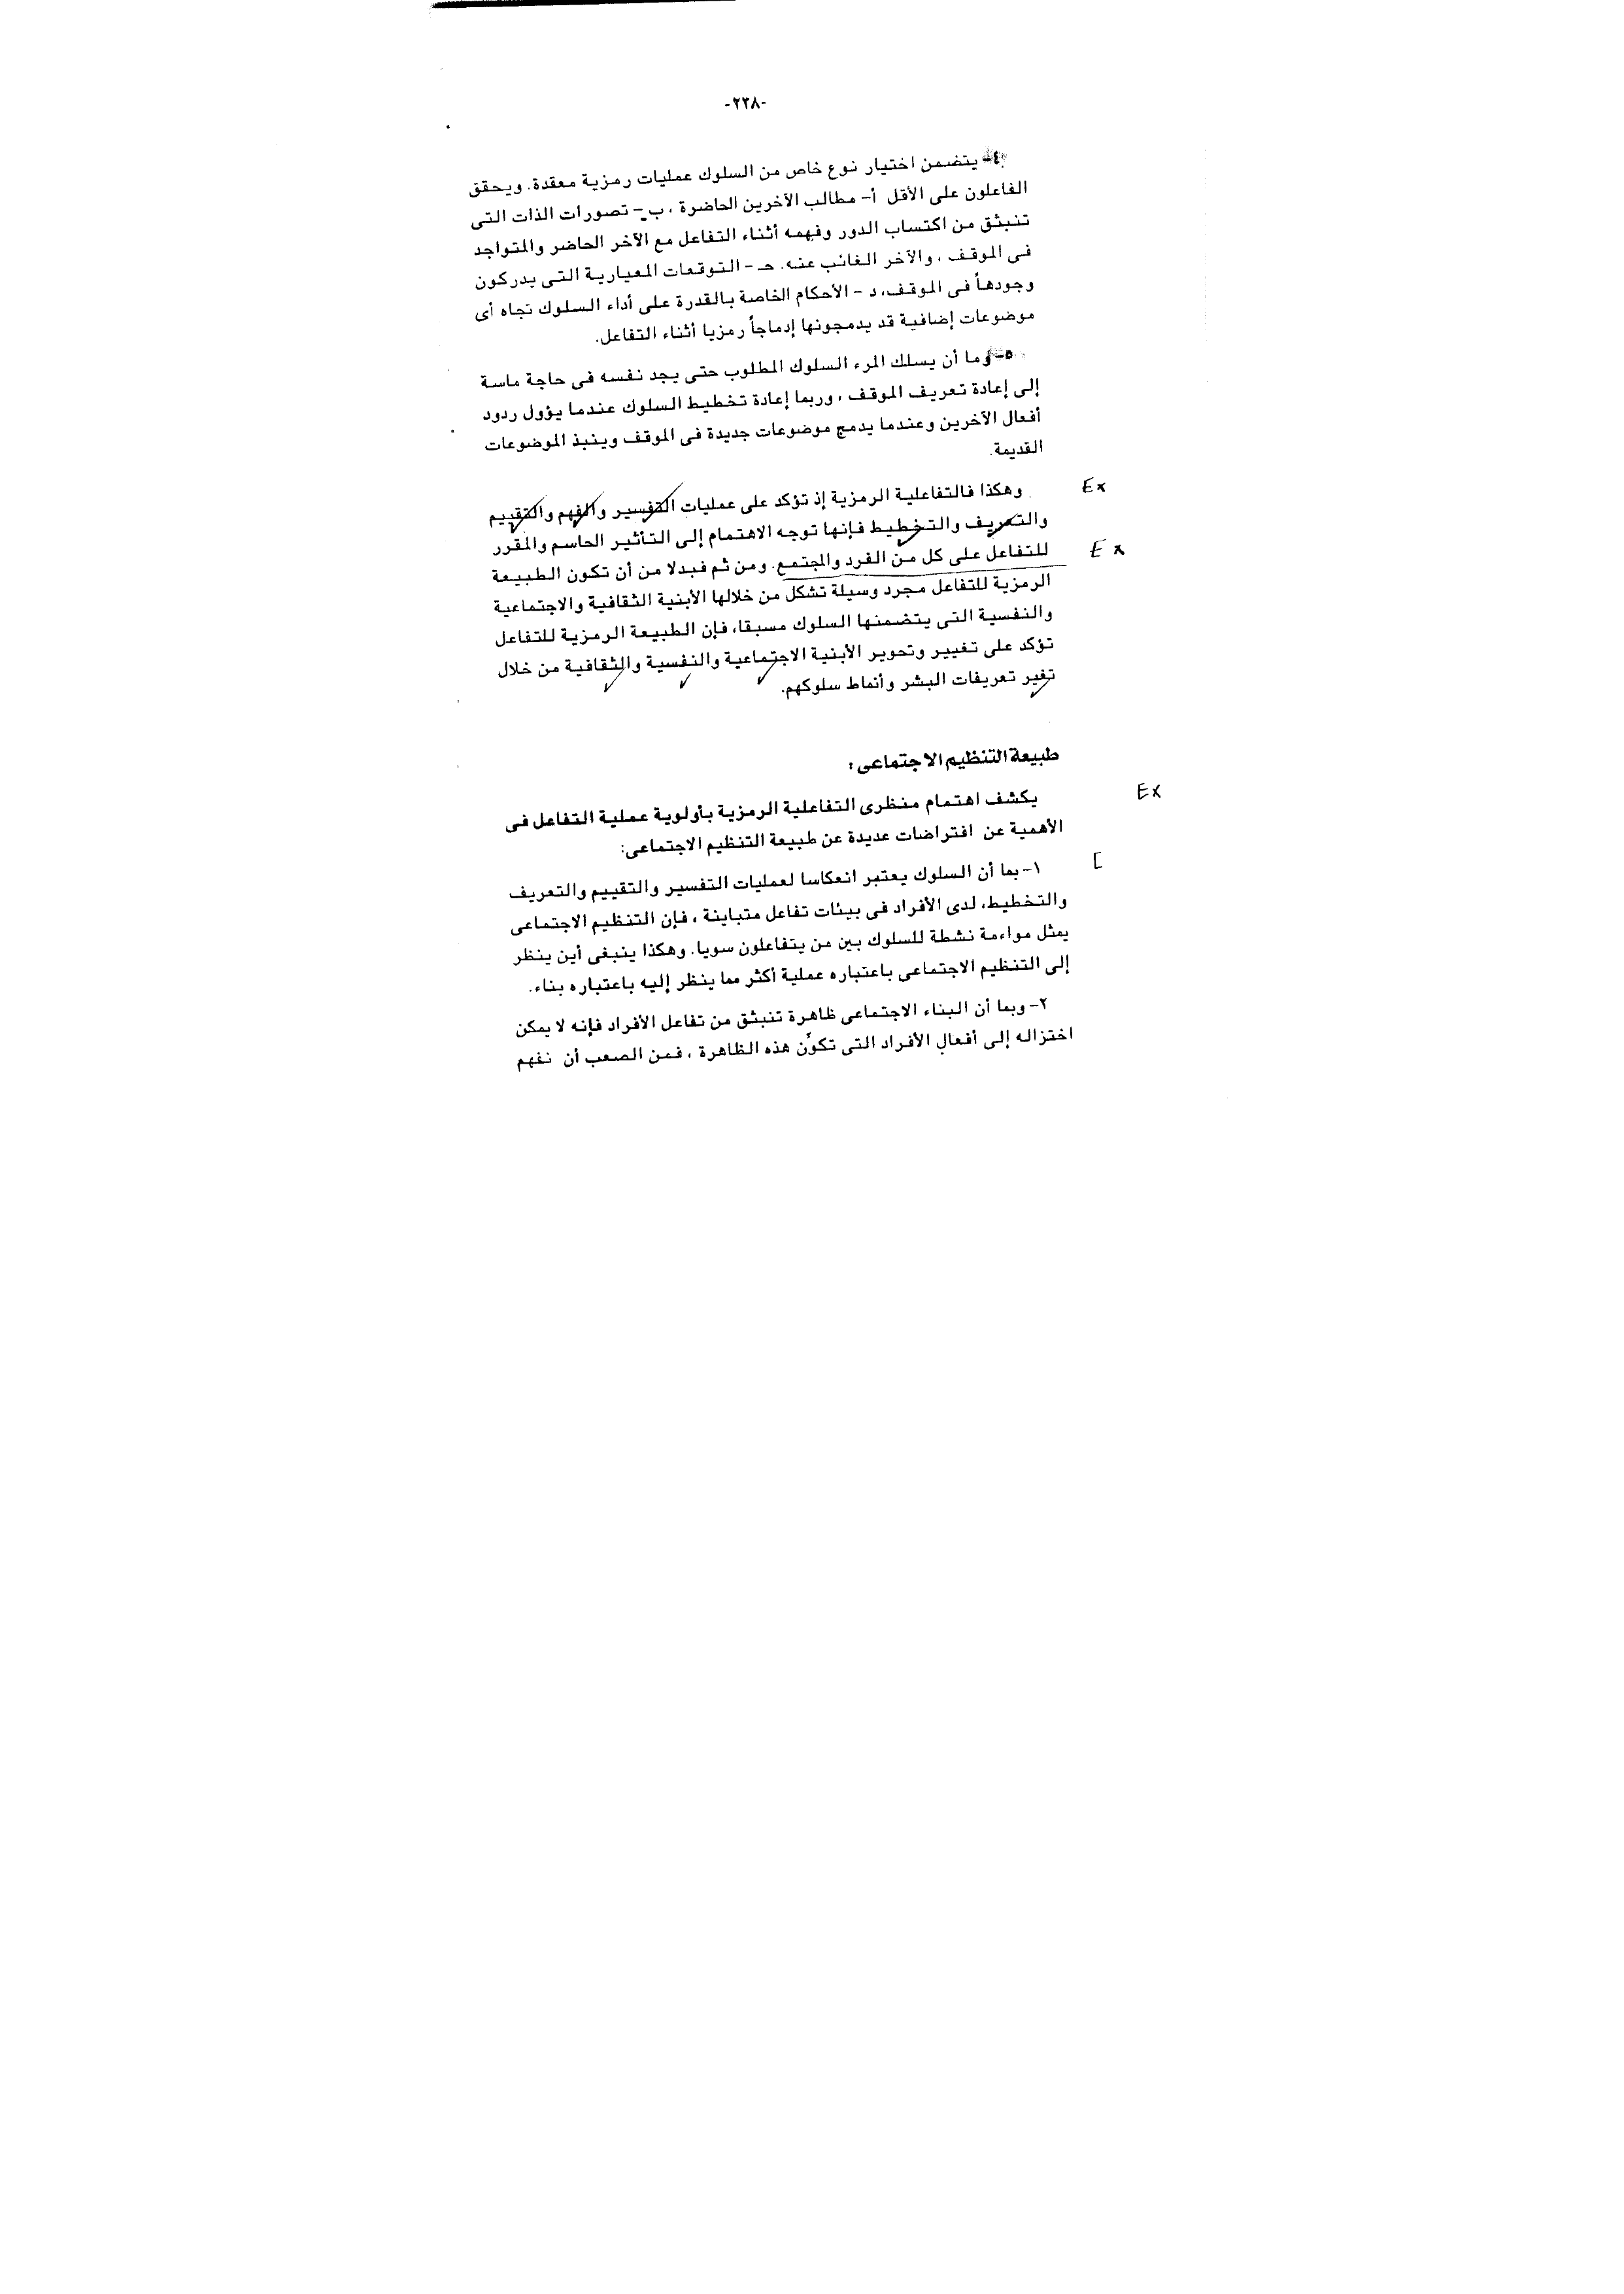 -٢٣٨-
٤- يتضمن اختيار نوع خاص من السلوك عمليات رمزية معقدة. ويحقق
الفاعلون على الأقل أ- مطالب الآخرين الحاضرة ، ب- تصورات الذات التى
تنبثق من اكتساب الدور وفهمه أثناء التفاعل مع الآخر الحاضر والمتواجد
فى الموقف ، والآخر الغائب عنه. حـ - التوقعات المعيارية التى يدركون
وجودهاً فى الموقف، د - الأحكام الخاصة بالقدرة على أداء السلوك تجاه أى
موضوعات إضافية قد يدمجونها إدماجاً رمزيا أثناء التفاعل.
٥- وما أن يسلك المرء السلوك المطلوب حتى يجد نفسه فى حاجة ماسة
إلى إعادة تعريف الموقف ، وربما إعادة تخطيط السلوك عندما يؤول ردود
أفعال الآخرين وعندما يدمج موضوعات جديدة فى الموقف وينبذ الموضوعات
القديمة.
وهكذا فالتفاعلية الرمزية إذ تؤكد على عمليات التفسير والفهم والتقييم Ex
والتعريف والتخطيط فإنها توجه الاهتمام إلى التأثير الحاسم والمقرر
للتفاعل على كل من الفرد والمجتمع. ومن ثم فبدلا من أن تكون الطبيعة Ex
الرمزية للتفاعل مجرد وسيلة تشكل من خلالها الأبنية الثقافية والاجتماعية
والنفسية التى يتضمنها السلوك مسبقا، فإن الطبيعة الرمزية للتفاعل
تؤكد على تغيير وتحوير الأبنية الاجتماعية والنفسية والثقافية من خلال
تغير تعريفات البشر وأنماط سلوكهم.
طبيعة التنظيم الاجتماعى :
يكشف اهتمام منظرى التفاعلية الرمزية بأولوية عملية التفاعل فى Ex
الأهمية عن افتراضات عديدة عن طبيعة التنظيم الاجتماعى:
١- بما أن السلوك يعتبر انعكاسا لعمليات التفسير والتقييم والتعريف [
والتخطيط، لدى الأفراد فى بيئات تفاعل متباينة ، فإن التنظيم الاجتماعى
يمثل مواءمة نشطة للسلوك بين من يتفاعلون سويا. وهكذا ينبغى أين ينظر
إلى التنظيم الاجتماعى باعتباره عملية أكثر مما ينظر إليه باعتباره بناء.
٢- وبما أن البناء الاجتماعى ظاهرة تنبثق من تفاعل الأفراد فإنه لا يمكن
اختزاله إلى أفعال الأفراد التى تكوّن هذه الظاهرة ، فمن الصعب أن نفهم